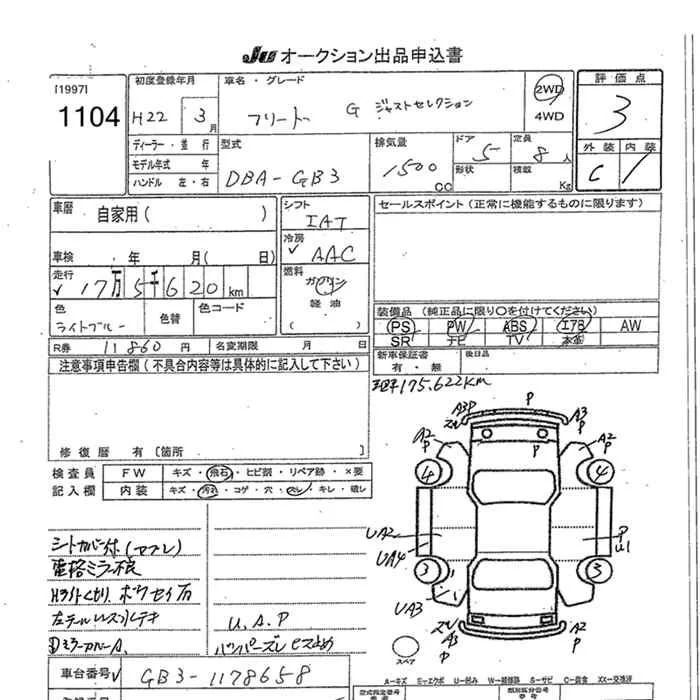 JU オークション出品申込書
[1997]
1104
初度登録年月
H22 3月
車名・グレード
フリード G ジャストセレクション
2WD
4WD
評価点
3
外装 内装
C
ディーラー・並行
モデル年式 年
ハンドル 左・右
型式
DBA-GB3
排気量
1500 CC
ドア
5
形状
定員
8人
積載
Kg
車歴
自家用( )
車検 年 月( 日)
走行
17万5千620km
色
ライトブルー
色替
色コード
シフト
IAT
冷房
AAC
燃料
ガソリン
軽油
( )
セールスポイント(正常に機能するものに限ります)
装備品(純正品に限り〇を付けてください)
PS PW ABS エアB AW
SR ナビ TV 本革
R券 11860円
名変期限 月 日
新車保証書
有・無
後日品
注意事項申告欄(不具合内容等は具体的に記入して下さい)
175.622KM
修復歴 有〔箇所 〕
検査員
記入欄
FW キズ・飛石・ヒビ割・リペア跡・×要
内装 キズ・汚れ・コゲ・穴・スレ・キレ・破レ
A3P P A3 P
A2 P P A2 P
4 4
UA2 P U1
UA4
3 3
UA3
A3 P P A2 P
スペア
シートカバー付(セプレ)
電格ミラー不良
左テールレンズ水テキ
U.A.P
バンパーズレ ビス止め
車台番号
GB3-1178658
A=キズ E=エクボ U=凹み W=補修跡 S=サビ C=腐食 XX=交換済